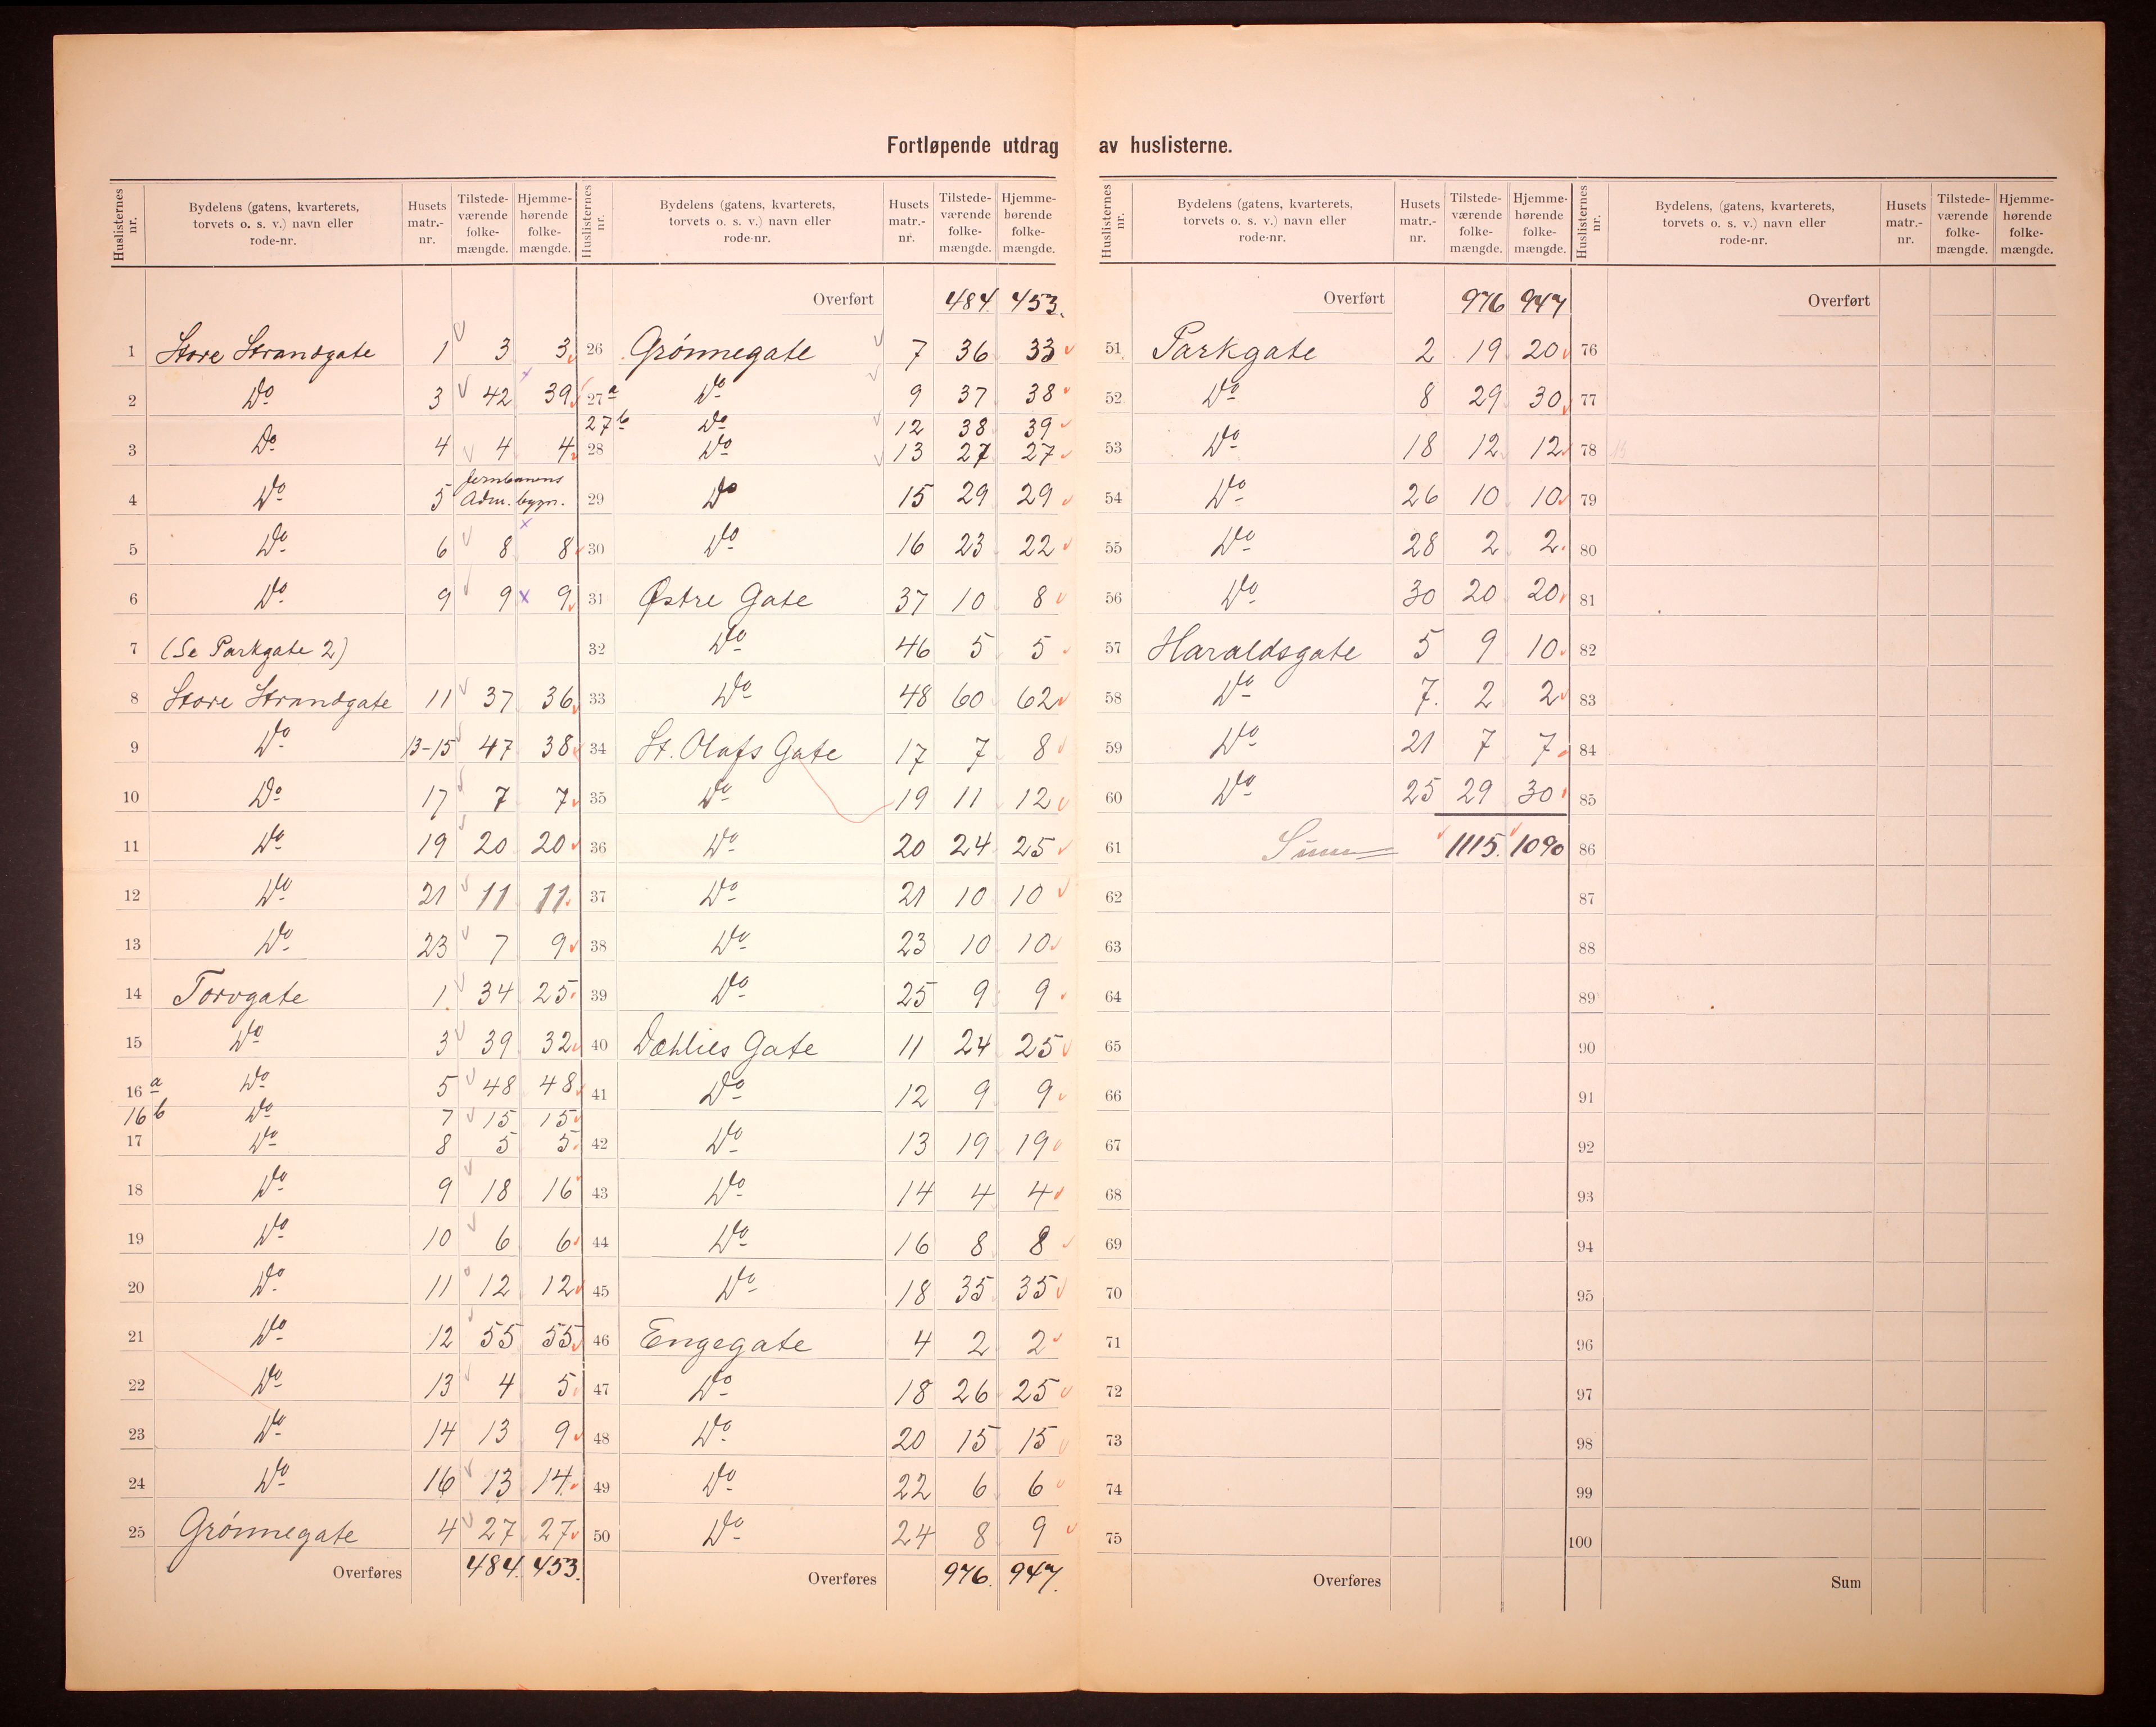 Fortløpende utdrag av huslisterne.
Huslisternes nr. Bydelens (gatens, kvarterets, torvets o. s. v.) navn eller rode-nr. Husets matr.-nr. Tilstedeværende folkemængde. Hjemmehørende folkemængde.
1 Store Strandgate 1 3 3
2 Do 3 42 39
3 Do 4 4 4
4 Do 5 Jernbanens Adm. bygn.
5 Do 6 8 8
6 Do 9 9 9
7 (Se Parkgate 2)
8 Store Strandgate 11 37 36
9 Do 13-15 47 38
10 Do 17 7 7
11 Do 19 20 20
12 Do 21 11 11
13 Do 23 7 9
14 Torvgate 1 34 25
15 Do 3 39 32
16 a Do 5 48 48
16 b Do 7 15 15
17 Do 8 5 5
18 Do 9 18 16
19 Do 10 6 6
20 Do 11 12 12
21 Do 12 55 55
22 Do 13 4 5
23 Do 14 13 9
24 Do 16 13 14
25 Grønnegate 4 27 27
Overføres 484 453
Huslisternes nr. Bydelens (gatens, kvarterets, torvets o. s. v.) navn eller rode-nr. Husets matr.-nr. Tilstedeværende folkemængde. Hjemmehørende folkemængde.
Overført 484 453
26 Grønnegate 7 36 33
27 a Do 9 37 38
27 b Do 12 38 39
28 Do 13 27 27
29 Do 15 29 29
30 Do 16 23 22
31 Østre Gate 37 10 8
32 Do 46 5 5
33 Do 48 60 62
34 St. Olafs Gate 17 7 8
35 Do 19 11 12
36 Do 20 24 25
37 Do 21 10 10
38 Do 23 10 10
39 Do 25 9 9
40 Dæhlies Gate 11 24 25
41 Do 12 9 9
42 Do 13 19 19
43 Do 14 4 4
44 Do 16 8 8
45 Do 18 35 35
46 Engegate 4 2 2
47 Do 18 26 25
48 Do 20 15 15
49 Do 22 6 6
50 Do 24 8 9
Overføres 976 947
Huslisternes nr. Bydelens (gatens, kvarterets, torvets o. s. v.) navn eller rode-nr. Husets matr.-nr. Tilstedeværende folkemængde. Hjemmehørende folkemængde.
Overført 976 947
51 Parkgate 2 19 20
52 Do 8 29 30
53 Do 18 12 12
54 Do 26 10 10
55 Do 28 2 2
56 Do 30 20 20
57 Haraldsgate 5 9 10
58 Do 7 2 2
59 Do 21 7 7
60 Do 25 29 30
61 Sum 1115 1090
62
63
64
65
66
67
68
69
70
71
72
73
74
75
Overføres
Huslisternes nr. Bydelens, (gatens, kvarterets, torvets o. s. v.) navn eller rode-nr. Husets matr.-nr. Tilstedeværende folkemængde. Hjemmehørende folkemængde.
Overført
76
77
78
79
80
81
82
83
84
85
86
87
88
89
90
91
92
93
94
95
96
97
98
99
100
Sum